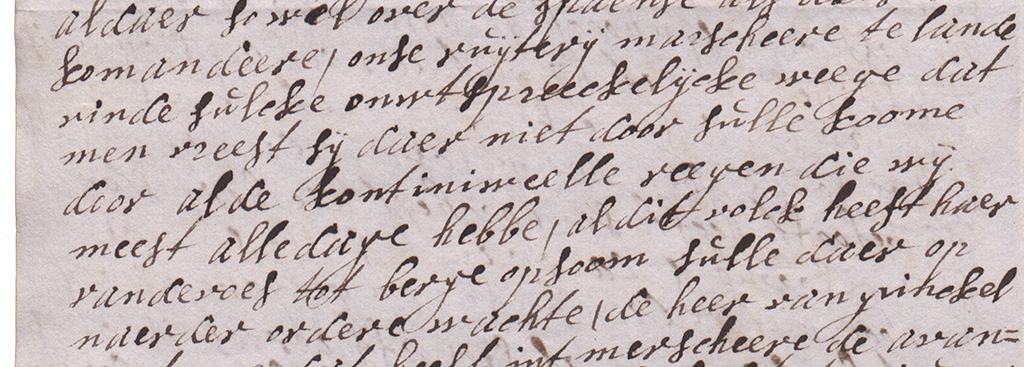 aldaer so wel over de spaense als
komandeere, onse ruÿterÿ marscheere te lande
vinde sulcke onwtspreeckelÿcke weege dat
men vreest sÿ daer niet door sulle koome
door al de kontiniweelle reegen die wÿ
meest alle dage hebbe, al dit volck heeft haer
randevoes tot berge opsoom sulle daer op
naerder ordere wachte, de heer van ginckel
heeft int merscheere de avan=